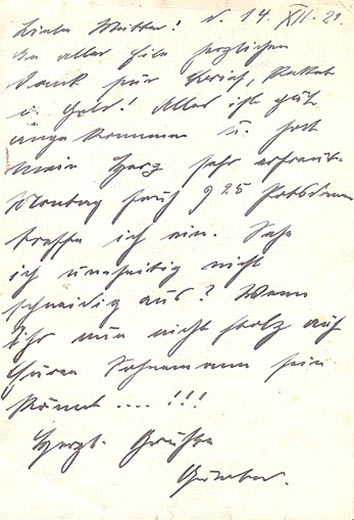 Liebe Mutter! d. 14. XII. 21.
In aller Eile herzlichen
Dank für Brief, Paket
u. Geld! Alles ist gut
angekommen u. hat
mein Herz sehr erfreut.
Montag früh 9 25 Potsdam
treffe ich ein. Sehe
ich unheitig nicht
schneidig aus? Wenn
Ihr nun nicht stolz auf
Euren Sohnemann sein
könnt .... !!!
Herzl. Grüße